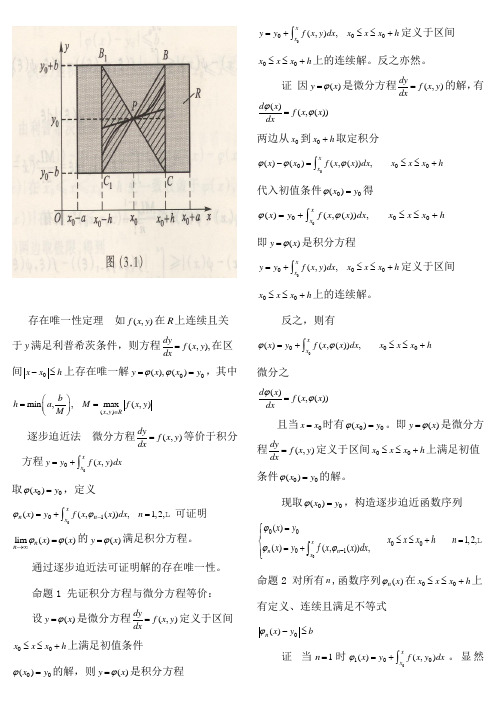 y
y₀+b
B₁
B
R
P
y₀
y₀-b
C₁
C
O x₀-a x₀-h x₀ x₀+h x₀+a x
图 (3.1)
存在唯一性定理 如 f(x,y) 在 R 上连续且关
于 y 满足利普希茨条件，则方程 dy/dx = f(x,y), 在区
间 x−x₀ ≤ h 上存在唯一解 y=φ(x), φ(x₀)=y₀，其中
h = min(a, b/M), M = max_{(x,y)∈R} f(x,y)
逐步迫近法 微分方程 dy/dx = f(x,y) 等价于积分
方程 y = y₀ + ∫_{x₀}^{x} f(x,y)dx
取 φ(x₀)=y₀，定义
φₙ(x) = y₀ + ∫_{x₀}^{x} f(x,φₙ₋₁(x))dx, n=1,2,L 可证明
lim_{n→∞} φₙ(x) = φ(x) 的 y=φ(x) 满足积分方程。
通过逐步迫近法可证明解的存在唯一性。
命题 1 先证积分方程与微分方程等价：
设 y=φ(x) 是微分方程 dy/dx = f(x,y) 定义于区间
x₀ ≤ x ≤ x₀+h 上满足初值条件
φ(x₀)=y₀ 的解，则 y=φ(x) 是积分方程
y = y₀ + ∫_{x₀}^{x} f(x,y)dx, x₀ ≤ x ≤ x₀+h 定义于区间
x₀ ≤ x ≤ x₀+h 上的连续解。反之亦然。
证 因 y=φ(x) 是微分方程 dy/dx = f(x,y) 的解，有
dφ(x)/dx = f(x,φ(x))
两边从 x₀ 到 x₀+h 取定积分
φ(x)−φ(x₀) = ∫_{x₀}^{x} f(x,φ(x))dx, x₀ ≤ x ≤ x₀+h
代入初值条件 φ(x₀)=y₀ 得
φ(x) = y₀ + ∫_{x₀}^{x} f(x,φ(x))dx, x₀ ≤ x ≤ x₀+h
即 y=φ(x) 是积分方程
y = y₀ + ∫_{x₀}^{x} f(x,y)dx, x₀ ≤ x ≤ x₀+h 定义于区间
x₀ ≤ x ≤ x₀+h 上的连续解。
反之，则有
φ(x) = y₀ + ∫_{x₀}^{x} f(x,φ(x))dx, x₀ ≤ x ≤ x₀+h
微分之
dφ(x)/dx = f(x,φ(x))
且当 x=x₀ 时有 φ(x₀)=y₀。即 y=φ(x) 是微分方
程 dy/dx = f(x,y) 定义于区间 x₀ ≤ x ≤ x₀+h 上满足初值
条件 φ(x₀)=y₀ 的解。
现取 φ(x₀)=y₀，构造逐步迫近函数序列
φ₀(x) = y₀
φₙ(x) = y₀ + ∫_{x₀}^{x} f(x,φₙ₋₁(x))dx, x₀ ≤ x ≤ x₀+h n=1,2,L
命题 2 对所有 n, 函数序列 φₙ(x) 在 x₀ ≤ x ≤ x₀+h 上
有定义、连续且满足不等式
φₙ(x)−y₀ ≤ b
证 当 n=1 时 φ₁(x) = y₀ + ∫_{x₀}^{x} f(x,y₀)dx 。显然